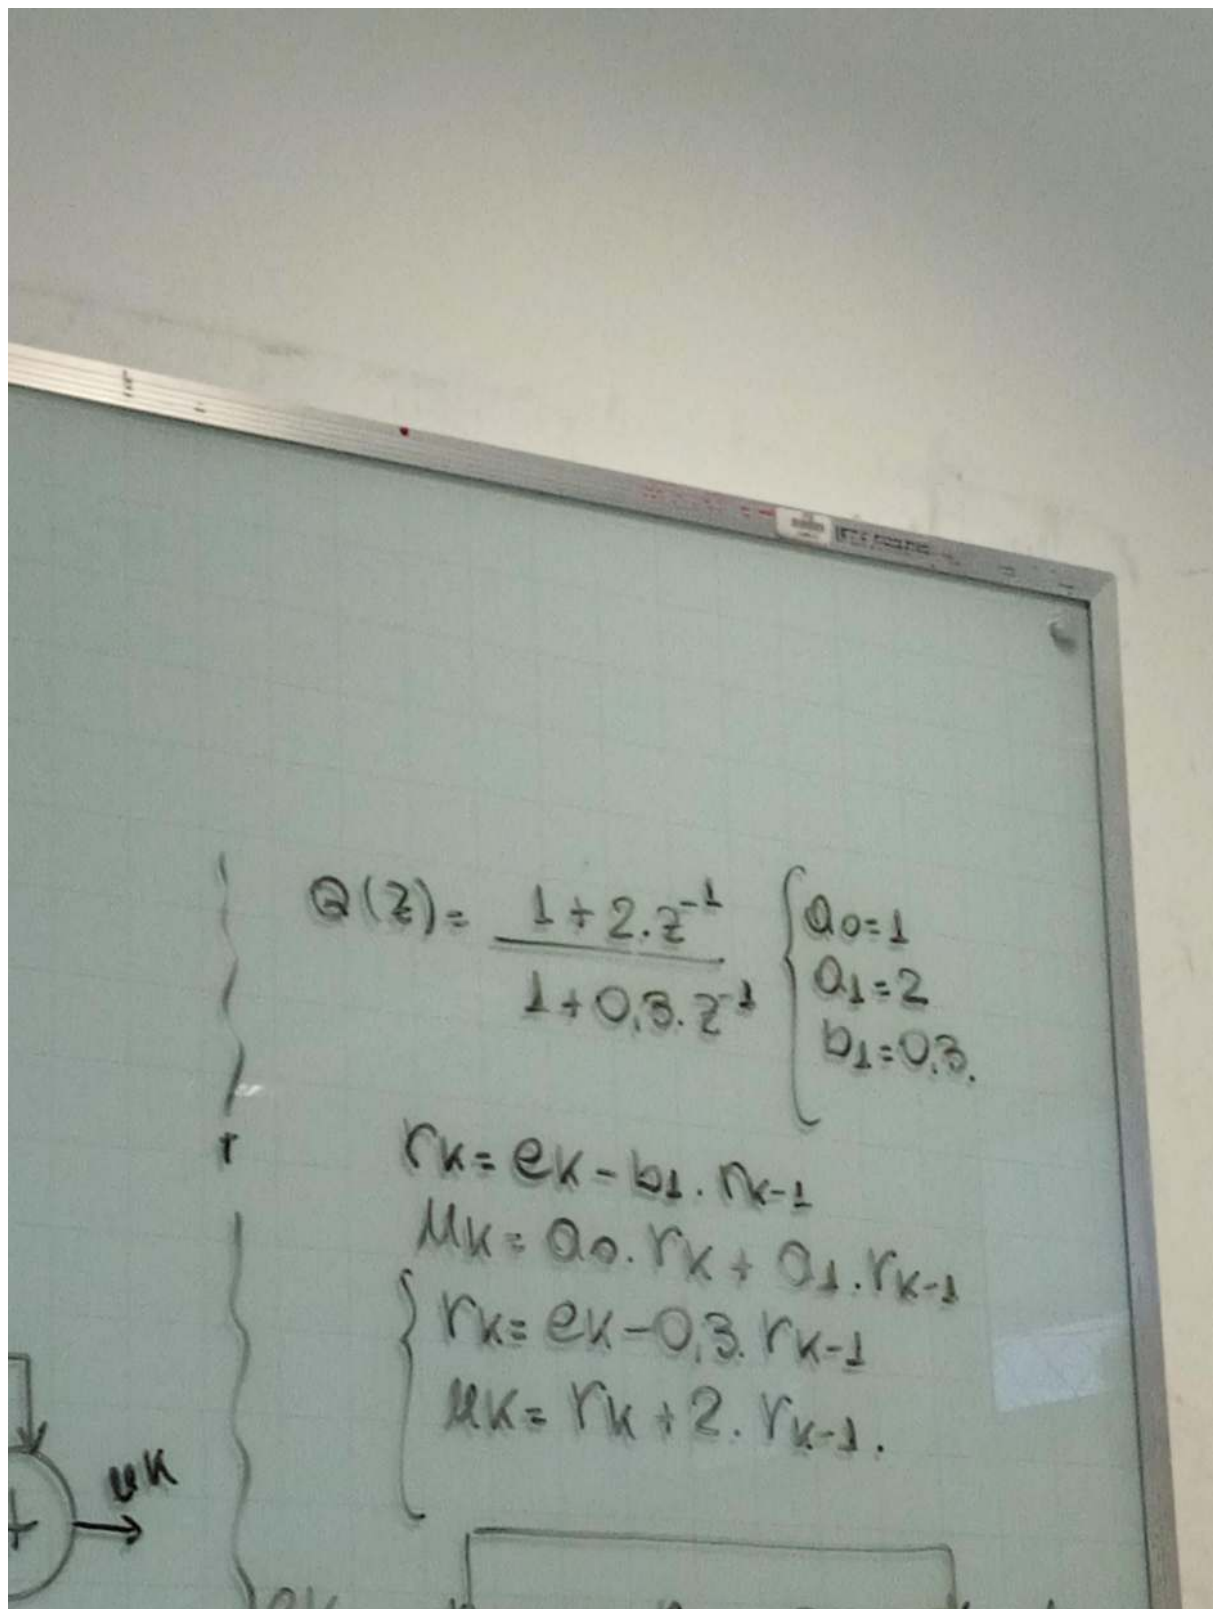 Q(z)= 1+2.z⁻¹ / 1+0,3.z⁻¹
a0=1
a1=2
b1=0,3.
rk= ek-b1.rk-1
uk= a0.rk+a1.rk-1
rk= ek-0,3.rk-1
uk= rk+2.rk-1.
uk
+